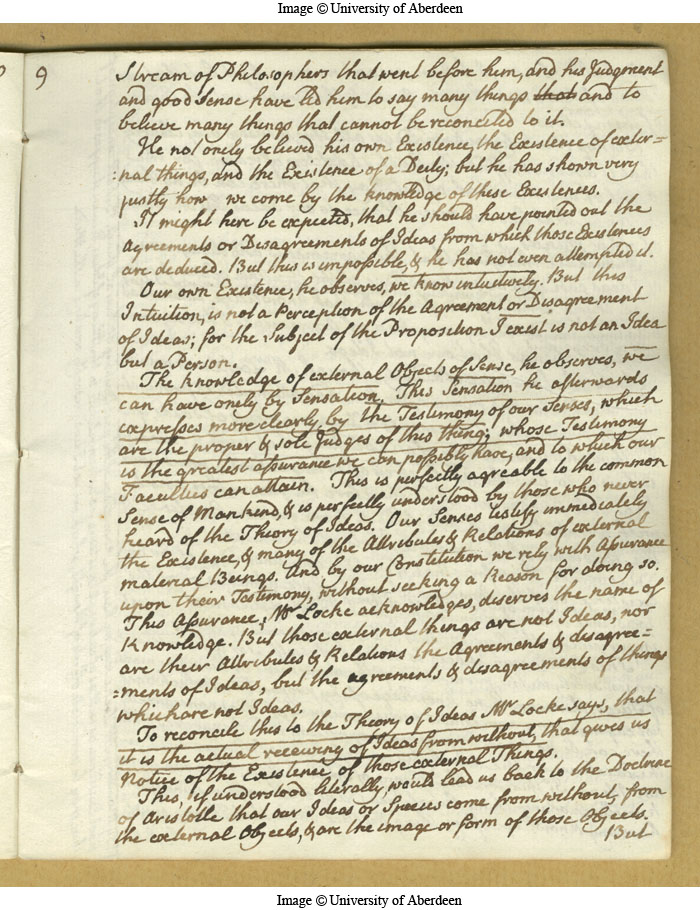 Image © University of Aberdeen
9
Stream of Philosophers that went before him, and his Judgment
and good Sense have led him to say many things that and to
believe many things that cannot be reconciled to it.
He not onely believed his own Existence, the Existence of exter=
=nal things, and the Existence of a Deity; but he has shown very
justly how we come by the knowledge of these Existences.
It might here be expected, that he should have pointed out the
Agreements or Disagreements of Ideas from which those Existences
are deduced. But this is impossible, & he has not even attempted it.
Our own Existence, he observes, we know intuitively. But this
Intuition, is not a Perception of the Agreement or Disagreement
of Ideas; for the Subject of the Proposition I exist is not an Idea
but a Person.
The knowledge of external Objects of Sense, he observes, we
can have onely by Sensation. This Sensation he afterwards
expresses more clearly by the Testimony of our Senses, which
are the proper & sole Judges of this thing; whose Testimony
is the greatest assurance we can possibly have, and to which our
Faculties can attain. This is perfectly agreable to the common
Sense of Mankind, & is perfectly understood by those who never
heard of the Theory of Ideas. Our Senses testify immediately
the Existence, & many of the Attributes & Relations of external
material Beings. And by our Constitution we rely with Assurance
upon their Testimony, without seeking a Reason for doing so.
This Assurance, Mr Locke acknowledges, deserves the name of
Knowledge. But those external things are not Ideas, nor
are their Attributes & Relations the Agreements & disagree=
=ments of Ideas, but the agreements & disagreements of things
which are not Ideas.
To reconcile this to the Theory of Ideas Mr Locke says, that
it is the actual receiving of Ideas from without, that gives us
Notice of the Existence of those external Things.
This, if understood literally would lead us back to the Doctrine
of Aristotle that our Ideas or Species come from without, from
the external Objects, & are the image or form of those Objects.
But
Image © University of Aberdeen